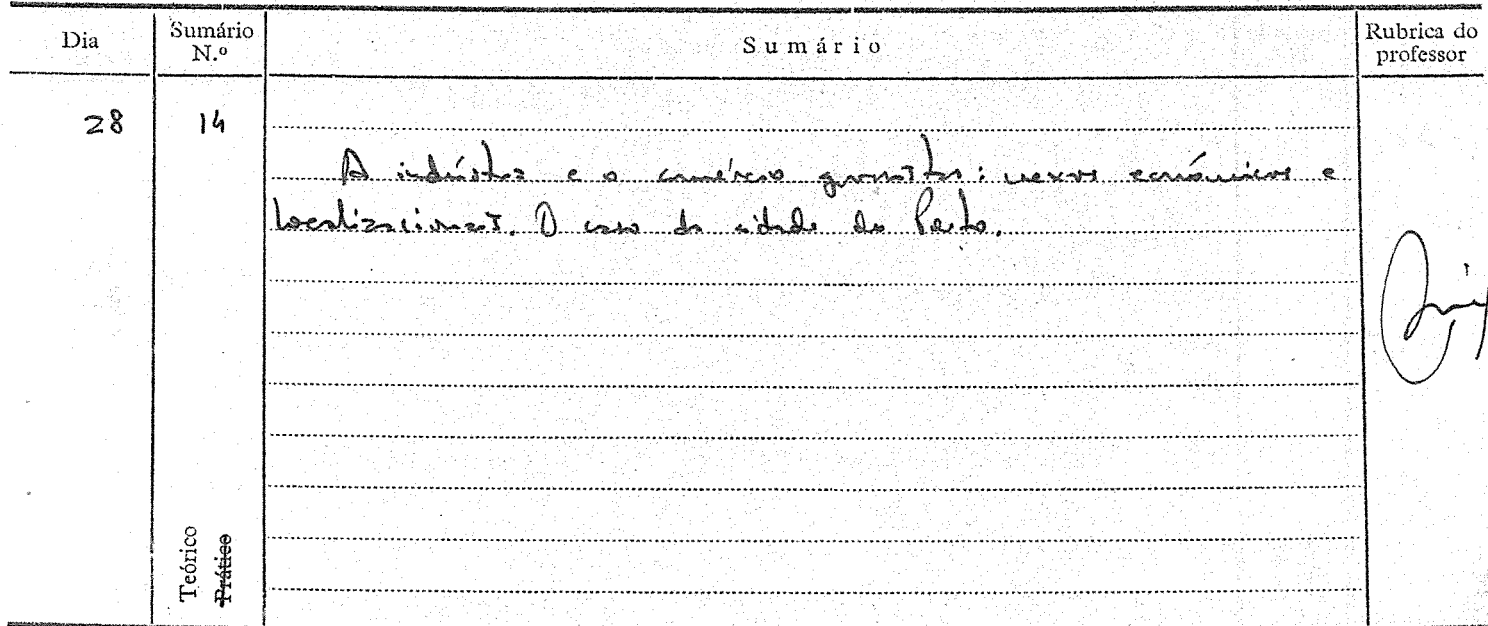 Dia
Sumário N.º
Sumário
Rubrica do professor
28
14
A indústria e o comércio grossistas: nexos económicos e
localizacionais. O caso da cidade do Porto.
Teórico
Prático